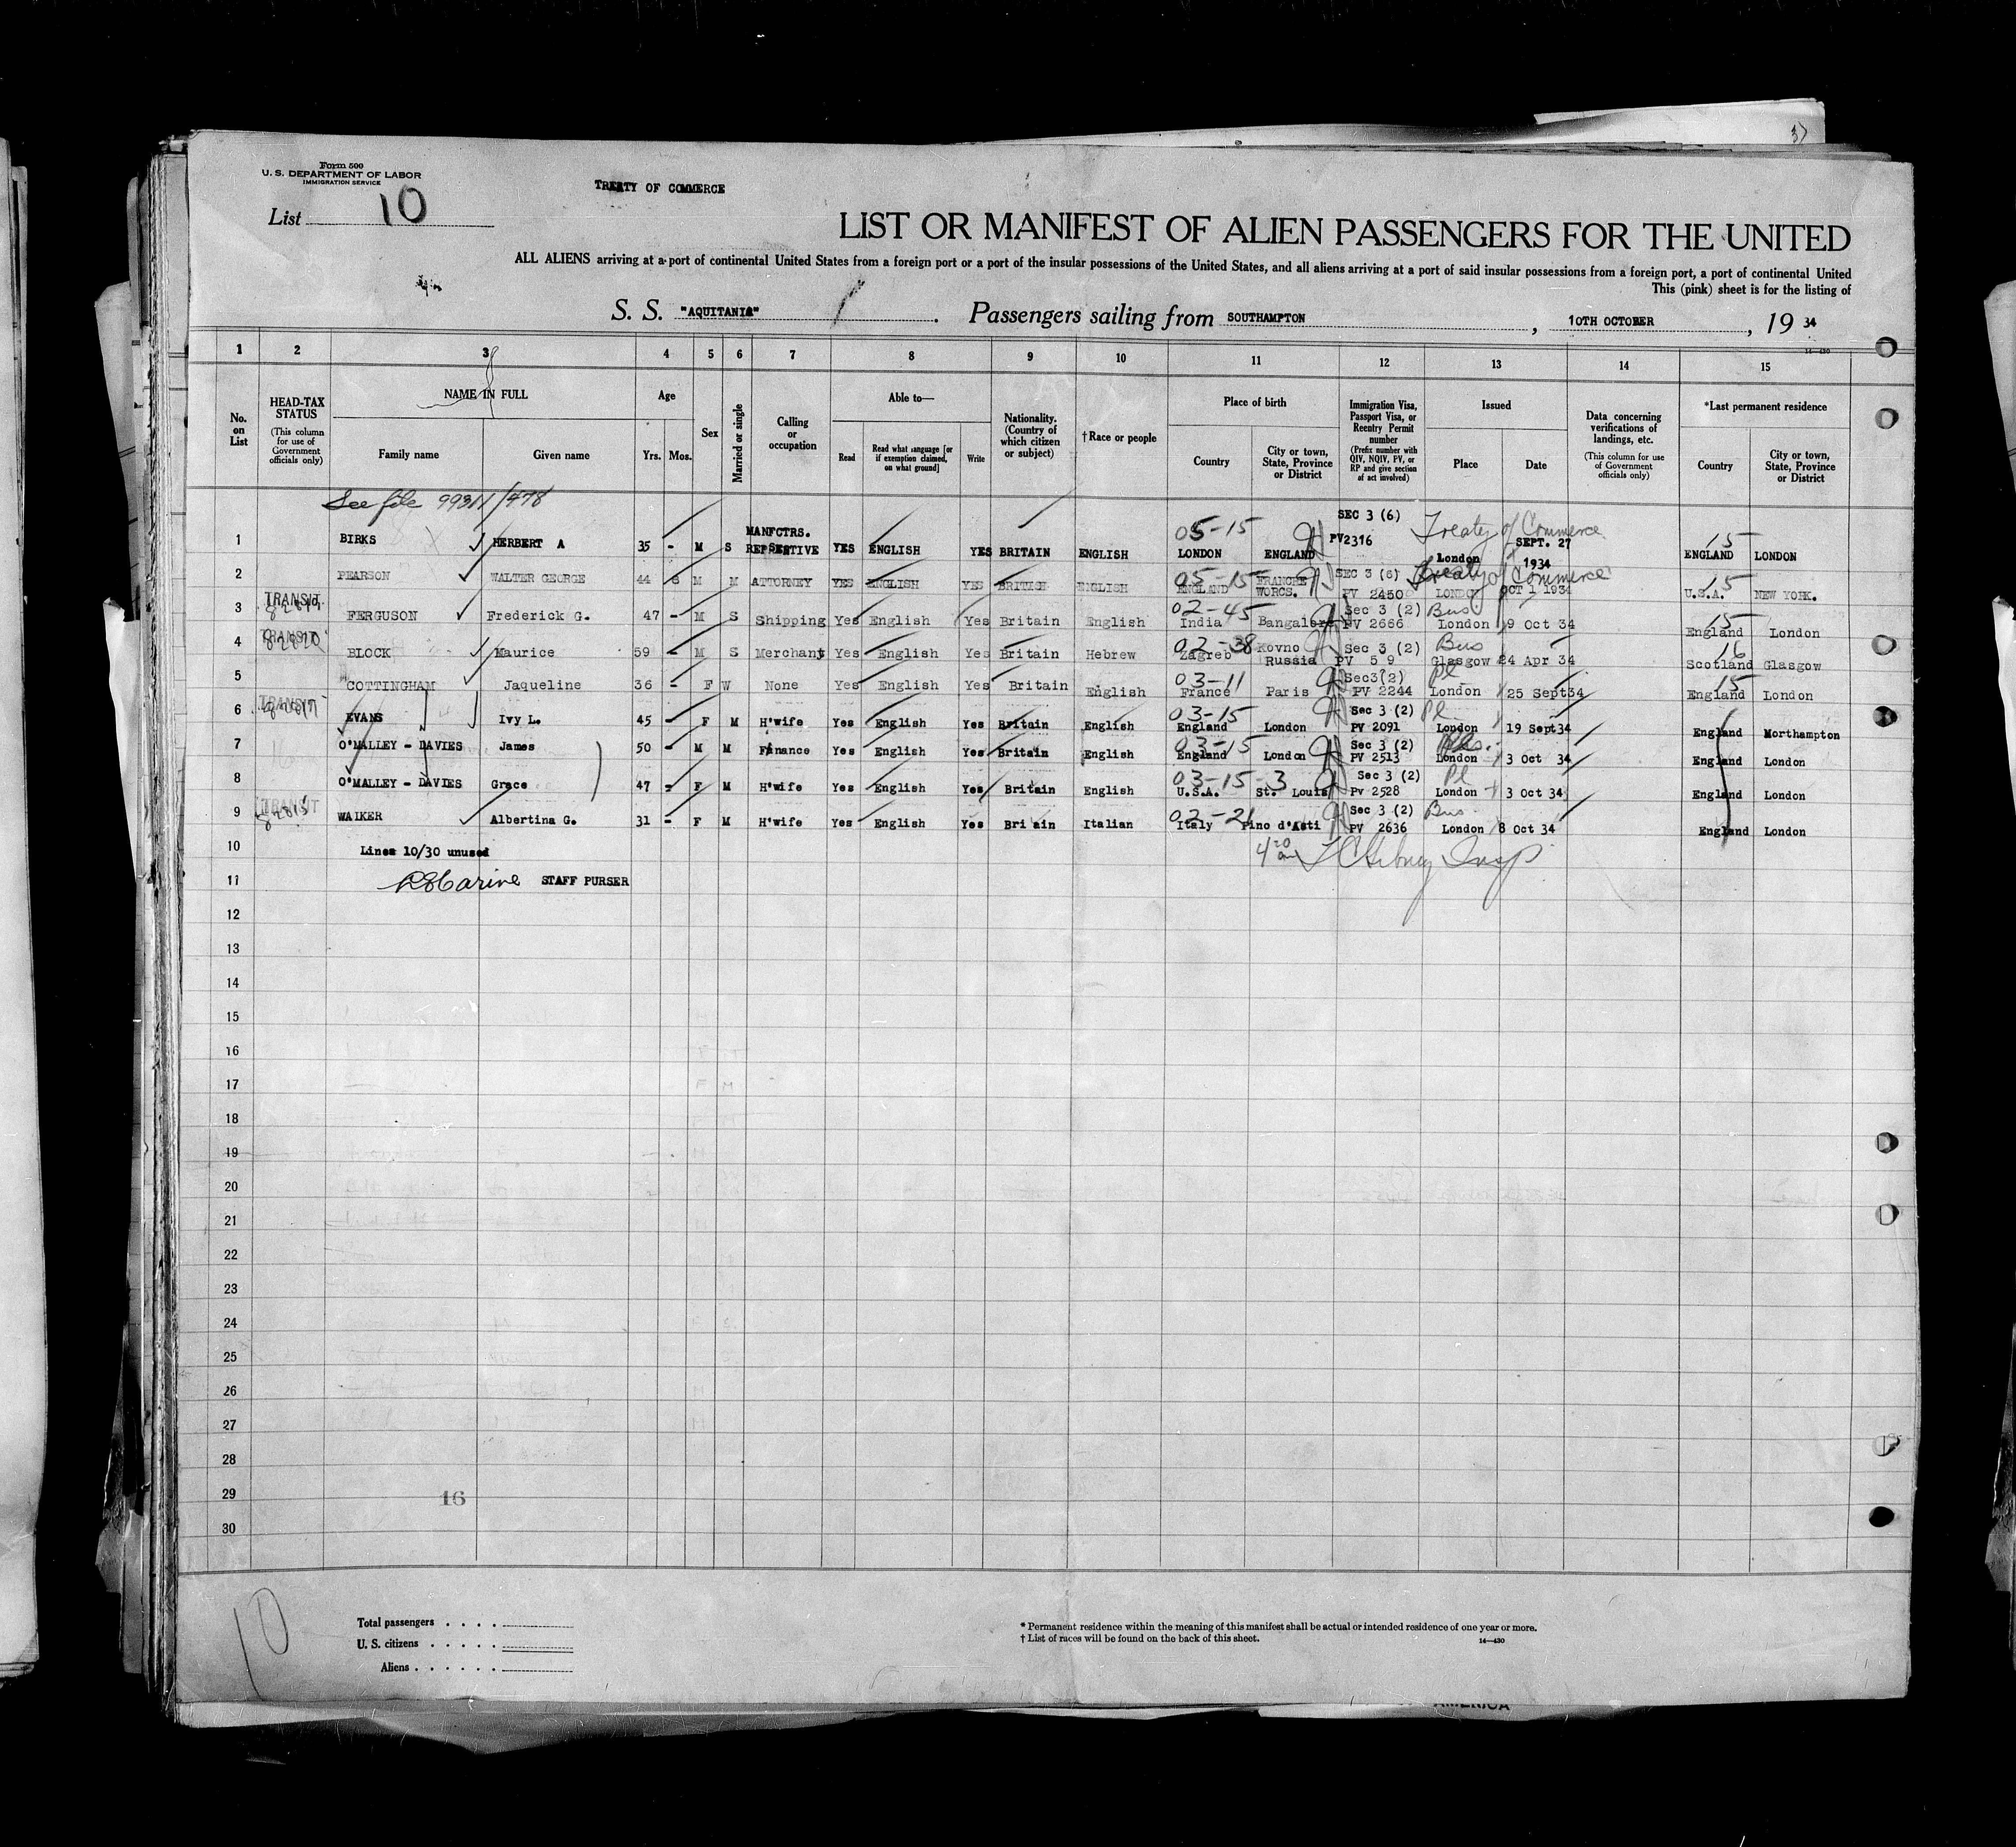 37
Form 500
U. S. DEPARTMENT OF LABOR
IMMIGRATION SERVICE
TREATY OF COMMERCE
List 10
LIST OR MANIFEST OF ALIEN PASSENGERS FOR THE UNITED
ALL ALIENS arriving at a port of continental United States from a foreign port or a port of the insular possessions of the United States, and all aliens arriving at a port of said insular possessions from a foreign port, a port of continental United
This (pink) sheet is for the listing of
S. S. "AQUITANIA" . Passengers sailing from SOUTHAMPTON , 10TH OCTOBER , 19 34
14—430
1 2 3 4 5 6 7 8 9 10 11 12 13 14 15
No. on List
HEAD-TAX STATUS
(This column for use of Government officials only)
NAME IN FULL
Family name Given name
Age
Yrs. Mos.
Sex
Married or single
Calling or occupation
Able to—
Read
Read what language [or if exemption claimed, on what ground]
Write
Nationality. (Country of which citizen or subject)
† Race or people
Place of birth
Country
City or town, State, Province or District
Immigration Visa, Passport Visa, or Reentry Permit number
(Prefix number with QIV, NQIV, PV, or RP and give section of act involved)
Issued
Place Date
Data concerning verifications of landings, etc.
(This column for use of Government officials only)
*Last permanent residence
Country
City or town, State, Province or District
See file 99311/478
1 BIRKS HERBERT A 35 - M S MANFCTRS. YES ENGLISH YES BRITAIN ENGLISH 05-15 LONDON ENGLAND SEC 3 (6) PV2316 Treaty of Commerce London SEPT. 27 1934 15 ENGLAND LONDON
2 PEARSON WALTER GEORGE 44 8 M M ATTORNEY YES ENGLISH YES BRITISH ENGLISH 05-15 ENGLAND FRANCHE WORCS. SEC 3 (6) PV 2450 Treaty of Commerce LONDON OCT 1 1934 15 U.S.A. NEW YORK.
3 TRANSIT FERGUSON Frederick G. 47 - M S Shipping Yes English Yes Britain English 02-45 India Bangalore Sec 3 (2) PV 2666 Bus London 9 Oct 34 15 England London
4 TRANSIT BLOCK Maurice 59 - M S Merchant Yes English Yes Britain Hebrew 02-38 Zagreb Kovno Russia Sec 3 (2) PV 5 9 Bus Glasgow 24 Apr 34 16 Scotland Glasgow
5 COTTINGHAM Jaqueline 36 - F W None Yes English Yes Britain English 03-11 France Paris Sec3(2) PV 2244 Pl London 25 Sept34 15 England London
6 TRANSIT EVANS Ivy L. 45 - F M H'wife Yes English Yes Britain English 03-15 England London Sec 3 (2) PV 2091 Pl London 19 Sept34 England Northampton
7 O'MALLEY - DAVIES James 50 - M M Finance Yes English Yes Britain English 03-15 England London Sec 3 (2) PV 2513 London 3 Oct 34 England London
8 O'MALLEY - DAVIES Grace 47 - F M H'wife Yes English Yes Britain English 03-15-3 U.S.A. St. Louis Sec 3 (2) Pv 2528 Pl London 3 Oct 34 England London
9 TRANSIT WALKER Albertina G. 31 - F M H'wife Yes English Yes Bri ain Italian 02-21 Italy Pino d'Asti Sec 3 (2) PV 2636 Bus London 8 Oct 34 England London
10 Lines 10/30 unused
11 STAFF PURSER
12
13
14
15
16
17
18
19
20
21
22
23
24
25
26
27
28
29 16
30
10
Total passengers . . . .
U. S. citizens . . . . .
Aliens . . . . . .
* Permanent residence within the meaning of this manifest shall be actual or intended residence of one year or more.
† List of races will be found on the back of this sheet. 14—430
AMERICA